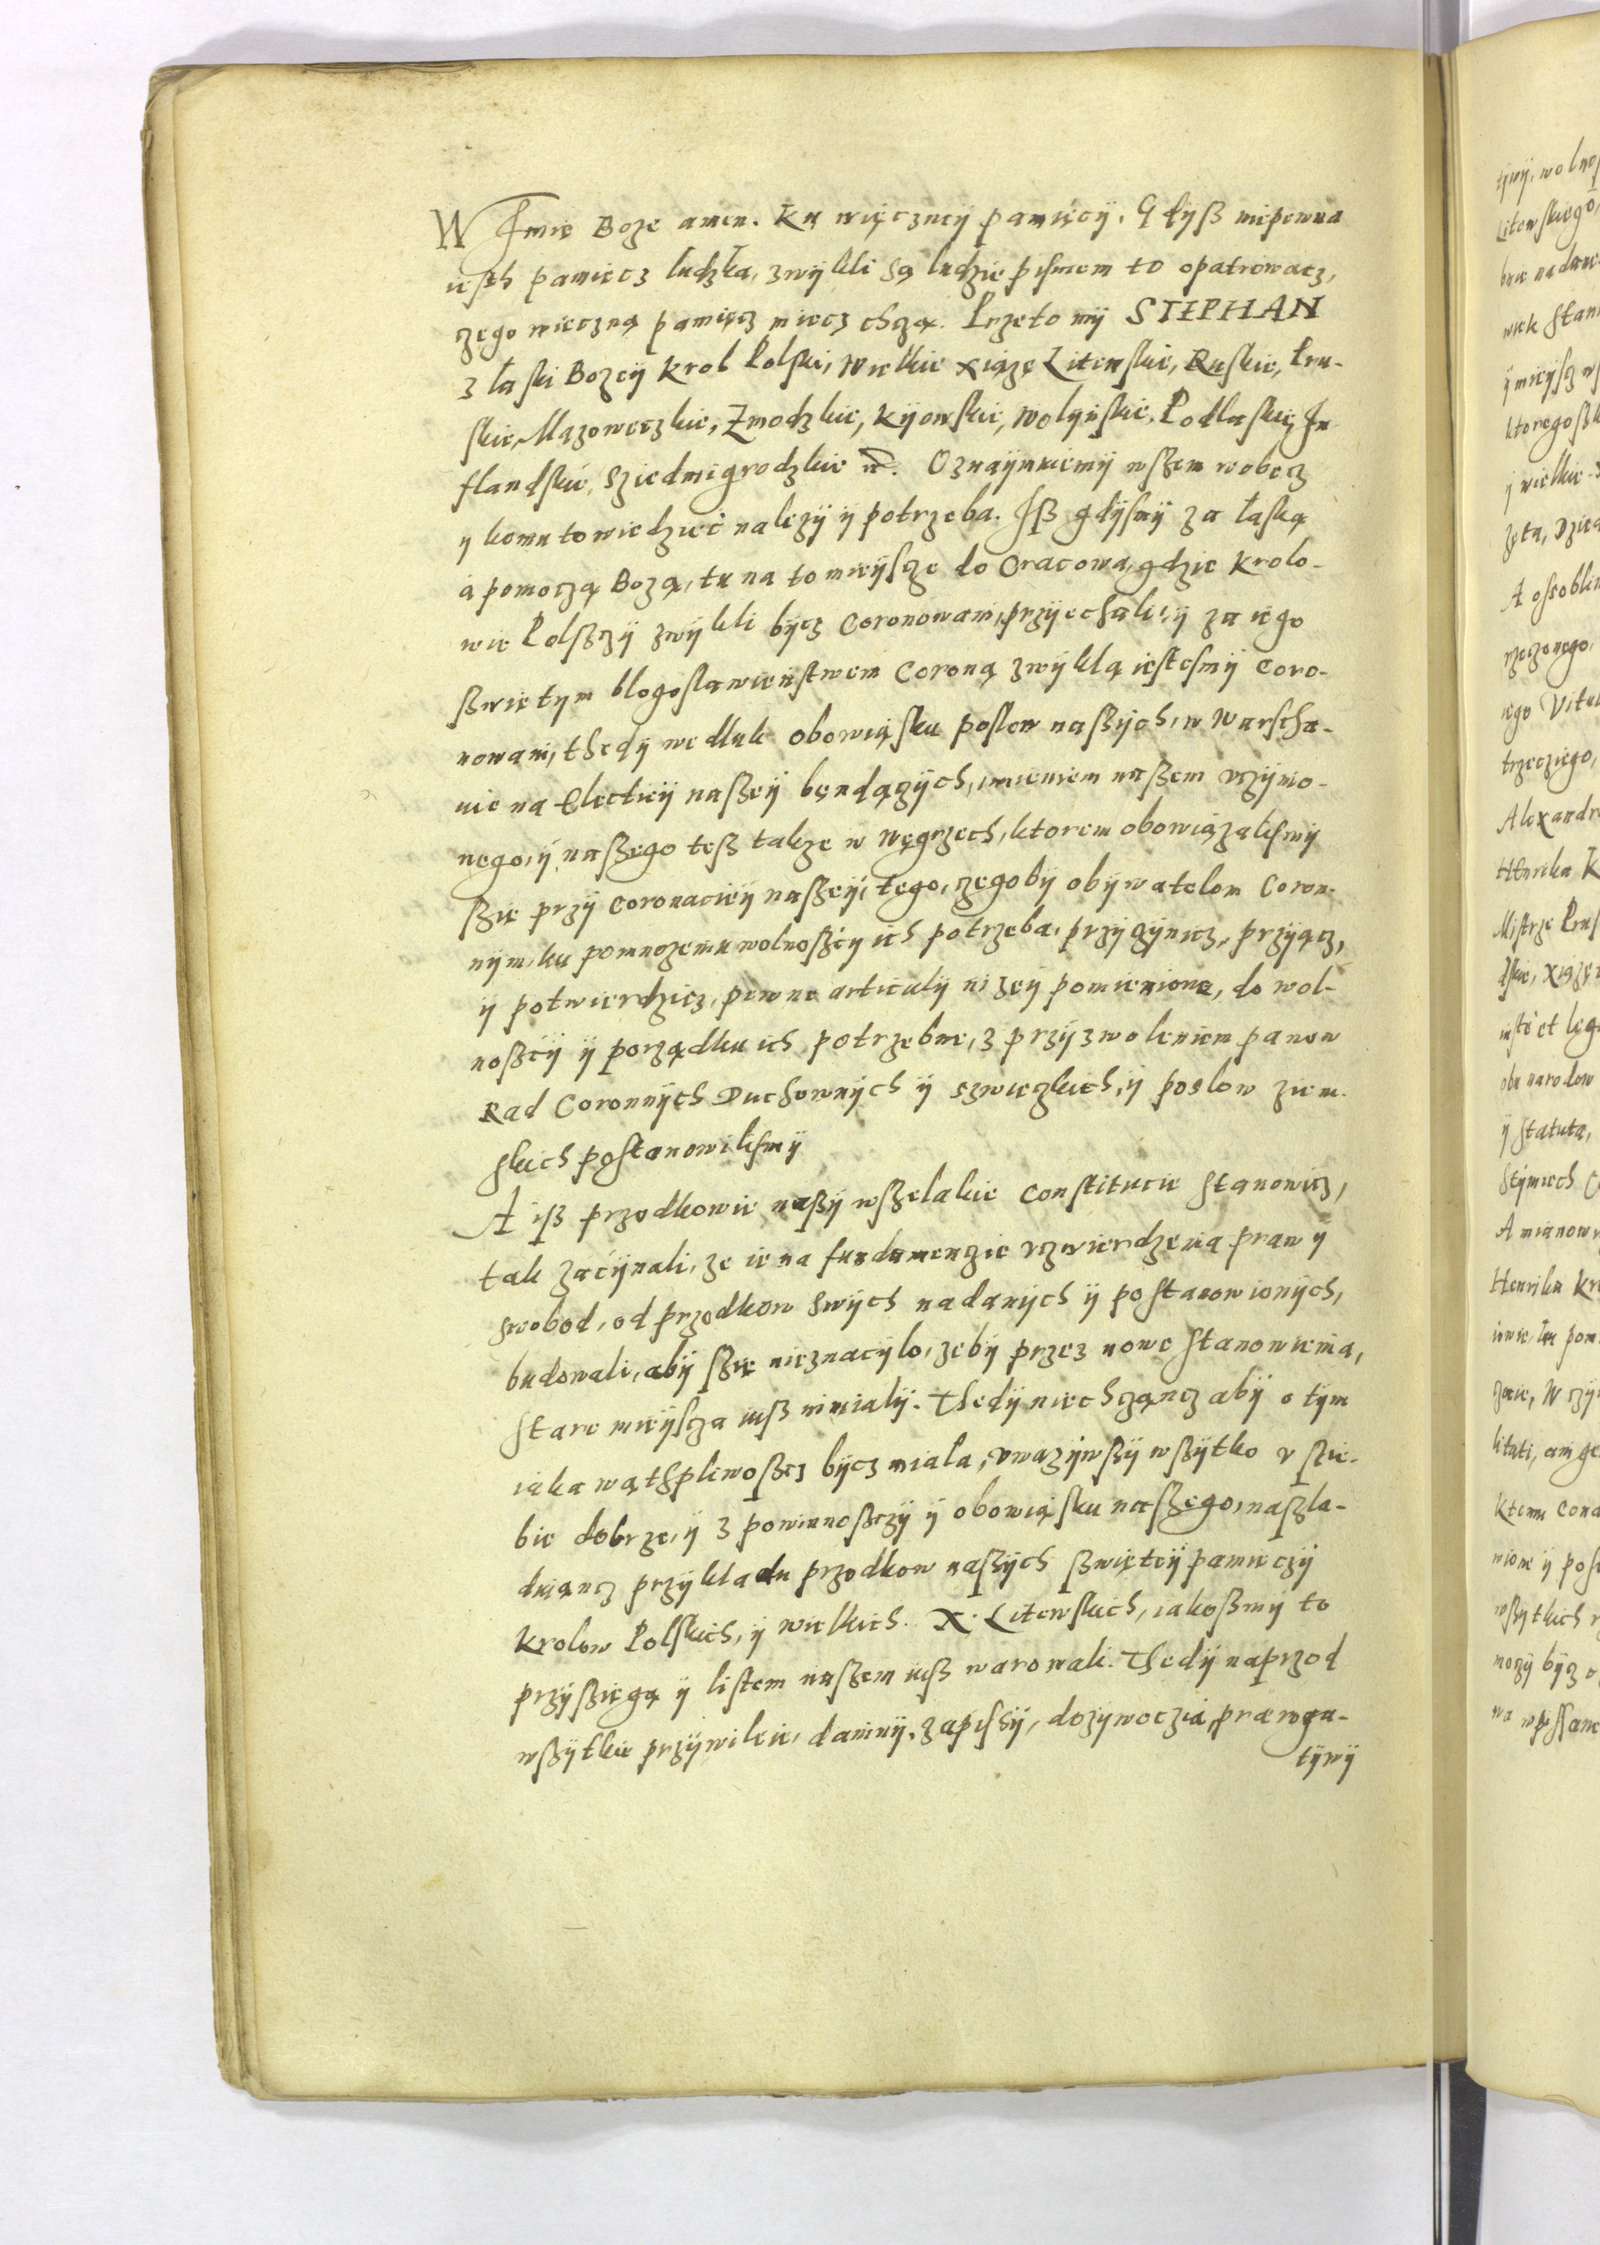 W Imię Boze amen. Ku więcznеÿ pamięcÿ. Gdÿß niepewna
iesth pamiecz ludzka, zwÿkli są ludzie pismem to opatrowacz,
czego wieczną pamięcz miecz chczą. Przeto mÿ STEPHAN
z łaski Bozeÿ Krol Polski, Wielkie Xiążę Litewskie, Ruskie, Pru-
skie, Mazoweczkie, Zmodzkie, Kÿowskie, Wolÿnskie, Podlaskie, In-
flandskie, Sziedmigrodzkie etc. Oznaÿmuiemÿ wßem wobecz
y komu to wiedzieć nalezÿ ÿ potrzeba. Iß gdÿsmÿ za łaską
a pomoczą Bozą, tu na to mieÿscze do Cracowa, gdzie Krolo-
wie Polsczÿ zwÿkli bÿcz Coronowani, przÿiechali, ÿ za iego
ßwietym blogoslawienstwem Coroną zwÿklą iestesmÿ Coro-
nowani, thedÿ wedluk obowiąsku poslow naßÿch, w Warscha-
wie na Electieÿ naßeÿ bęndączÿch, imieniem naßem vczÿnio-
nego, ÿ naßego teß takze w Węgrzech, ktorem obowiązalismÿ
ßie przÿ Coronacieÿ naßeÿ, tego, czegobÿ obÿwatelom Coron-
nÿm, ku pomnozeniu wolnoßćy ich potrzeba, przÿczÿnicz, przÿącz,
ÿ potwierdzicz, pewne articulÿ nizeÿ pomienione, do wol-
noßćÿ ÿ porządku ich potrzebne, z przÿzwoleniem panow
Rad Coronnÿch Duchownÿch ÿ szwieczkich, ÿ poslow ziem-
skich postanowilismÿ
A iß przodkowie naßÿ wßelakie Constitucie stanowicz,
tak zacÿnali, ze ie na fundamenczie vczwierdzenia praw ÿ
swobod, od przodkow swÿch nadanÿch ÿ postanowionÿch,
budowali, abÿ ßie nieznacÿlo, zebÿ przez nowe stanowienia,
stare mieÿscza iuß nimialÿ. Thedÿ niechcząncz abÿ o tÿm
iaka wąthpliwoßcz bÿcz miala, vwazÿwßÿ wßÿtko v sie-
bie dobrze, ÿ z powinnoßczÿ ÿ obowiąsku naßego, naszla-
duiąncz przÿkladu przodkow naßÿch ßwięteÿ pamieczÿ
Krolow Polskich, ÿ wielkich X. Litewskich, iakoßmÿ to
przÿßięgą ÿ listem naßem iuß warowali. Thedÿ naprzod
wßÿtkie przÿwileie, daninÿ, zapissÿ, dozÿwoczia, præroga-
tÿwÿ